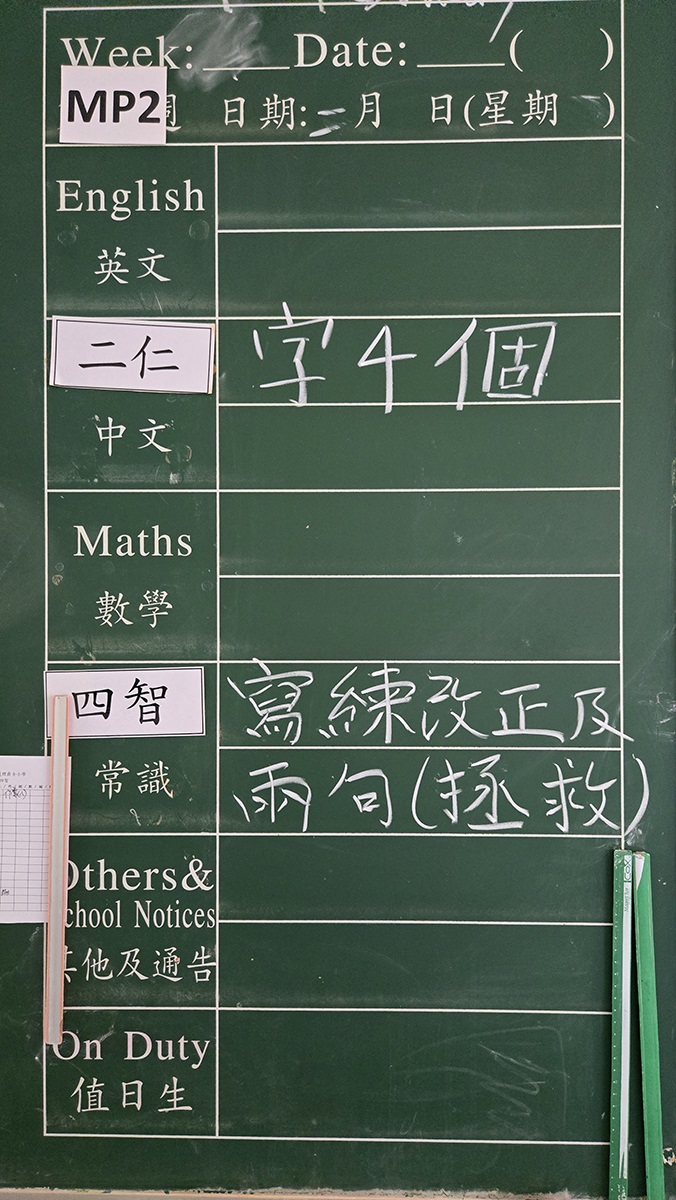 Week: ____ Date: ____ (    )
MP2 週 日期:二月 日(星期 )
English
英文
二仁 字4個
中文
Maths
數學
四智 寫練改正及
常識 兩句(拯救)
Others&
School Notices
其他及通告
On Duty
值日生